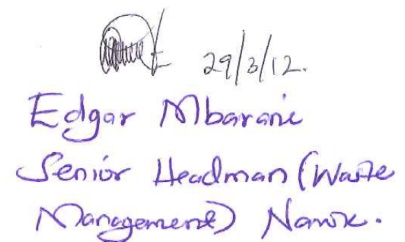 29/3/12.
Edgar Mbarane
Senior Headman (Waste
Management)